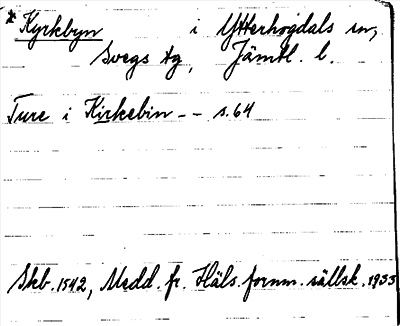 *Kyrkbyn i Ytterhogdals sn,
Svegs tg, Jämtl. l.
Ture i Kirkebin -- s. 64
Skb. 1542, Medd. fr. Häls. fornm. sällsk. 1935